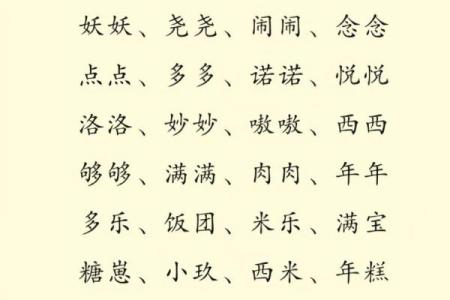 妖妖、尧尧、闹闹、念念
点点、多多、诺诺、悦悦
洛洛、妙妙、嗷嗷、西西
够够、满满、肉肉、年年
多乐、饭团、米乐、满宝
糖崽、小玖、西米、年糕